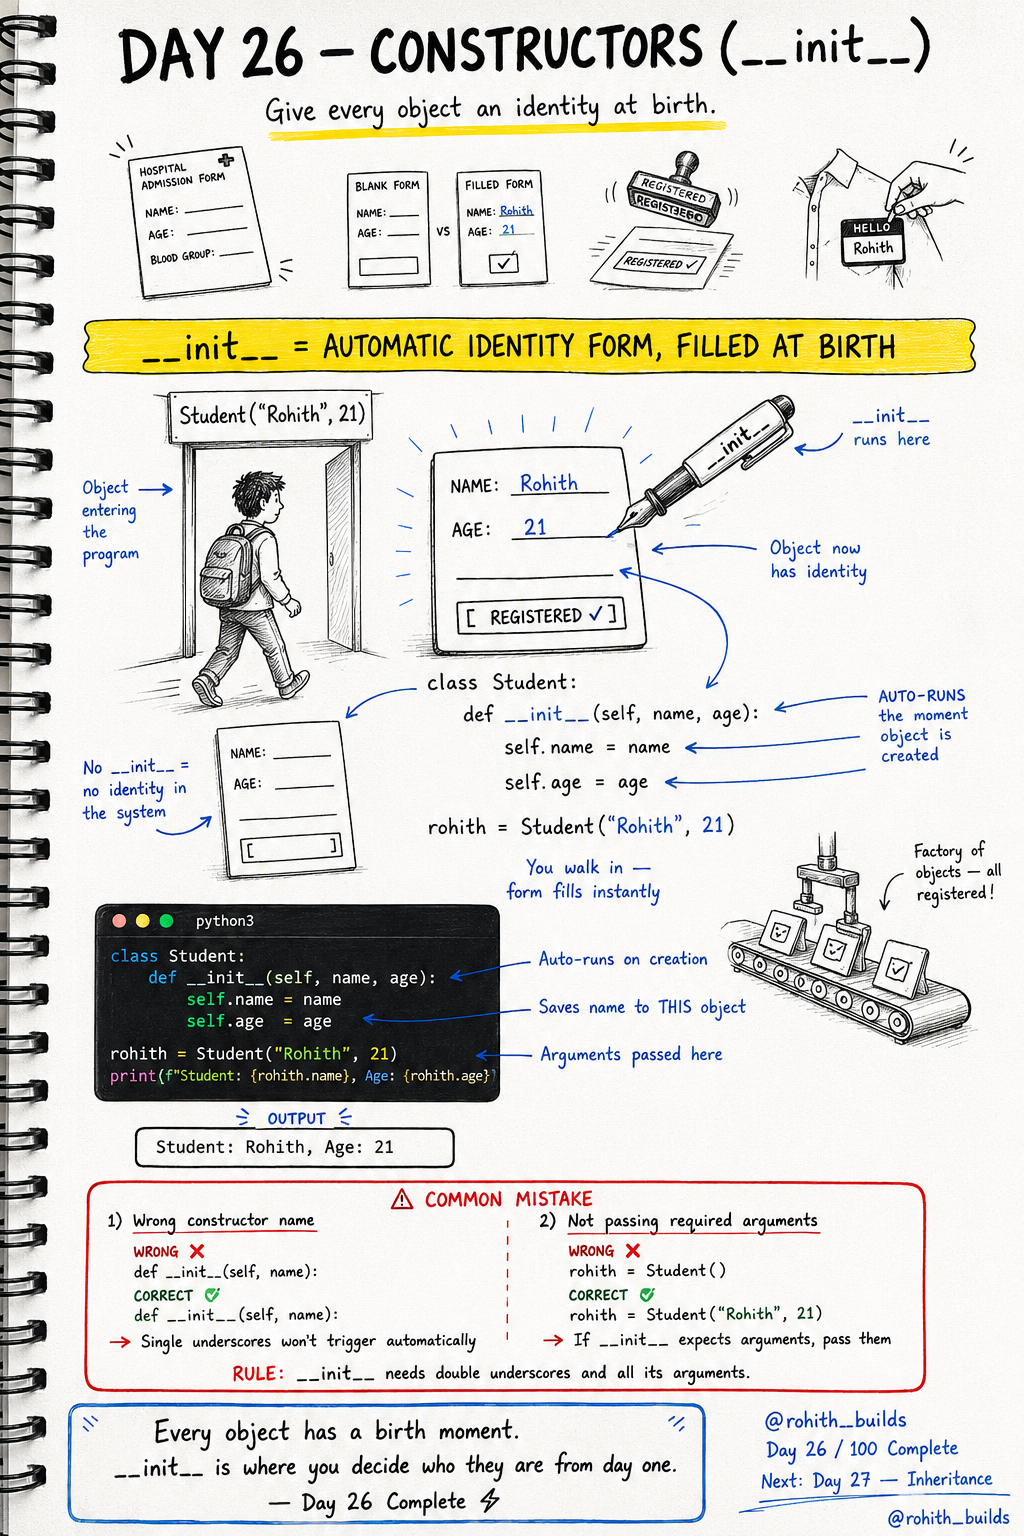 DAY 26 – CONSTRUCTORS (__init__)
Give every object an identity at birth.
HOSPITAL
ADMISSION FORM
NAME:
AGE:
BLOOD GROUP:
BLANK FORM
NAME:
AGE:
VS
FILLED FORM
NAME: Rohith
AGE: 21
REGISTERED
REGISTERED ✓
HELLO
Rohith
__init__ = AUTOMATIC IDENTITY FORM, FILLED AT BIRTH
Student("Rohith", 21)
Object
entering
the
program
NAME: Rohith
AGE: 21
[ REGISTERED ✓ ]
__init__
__init__
runs here
Object now
has identity
class Student:
def __init__(self, name, age):
self.name = name
self.age = age
rohith = Student("Rohith", 21)
AUTO-RUNS
the moment
object is
created
No __init__ =
no identity in
the system
NAME:
AGE:
[ ]
You walk in —
form fills instantly
Factory of
objects — all
registered!
python3
class Student:
def __init__(self, name, age):
self.name = name
self.age = age
rohith = Student("Rohith", 21)
print(f"Student: {rohith.name}, Age: {rohith.age}
Auto-runs on creation
Saves name to THIS object
Arguments passed here
OUTPUT
Student: Rohith, Age: 21
⚠ COMMON MISTAKE
1) Wrong constructor name
WRONG ❌
def __init__(self, name):
CORRECT ✅
def __init__(self, name):
→ Single underscores won't trigger automatically
2) Not passing required arguments
WRONG ❌
rohith = Student()
CORRECT ✅
rohith = Student("Rohith", 21)
→ If __init__ expects arguments, pass them
RULE: __init__ needs double underscores and all its arguments.
Every object has a birth moment.
__init__ is where you decide who they are from day one.
— Day 26 Complete ⚡
@rohith_builds
Day 26 / 100 Complete
Next: Day 27 — Inheritance
@rohith_builds